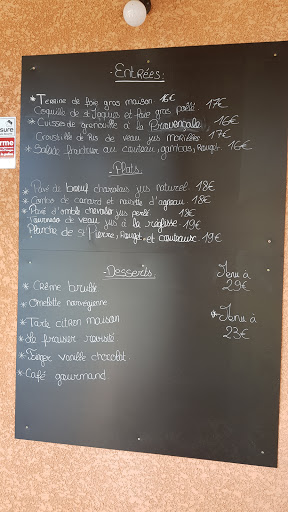 Entrées:
* Terrine de foie gras maison 16€
Coquille de st Jacques et foie gras poêlé 17€
* Cuisses de grenouille à la Provençale, 16€
Croustille de Ris de veau jus morilles 17€
* Salade fraicheur au couteau, gambas, Rouget. 16€
Plats.
* Pavé de bœuf charolais jus naturel. 18€
* Contre de canard et noisette d'agneau. 18€
* Pavé d'omble chevalier jus perlé 18€
Tournedos de veau jus à la réglisse. 19€
Planche de St Pierre, Rouget, et couteaux. 19€
Desserts,
Menu à
29€
* Crème brulée
* Omelette norvégienne
* Menu à
23€
* Tarte citron maison
* Le fraisier revisité
* Forger vanille chocolat.
* Café gourmand.
sure
rme